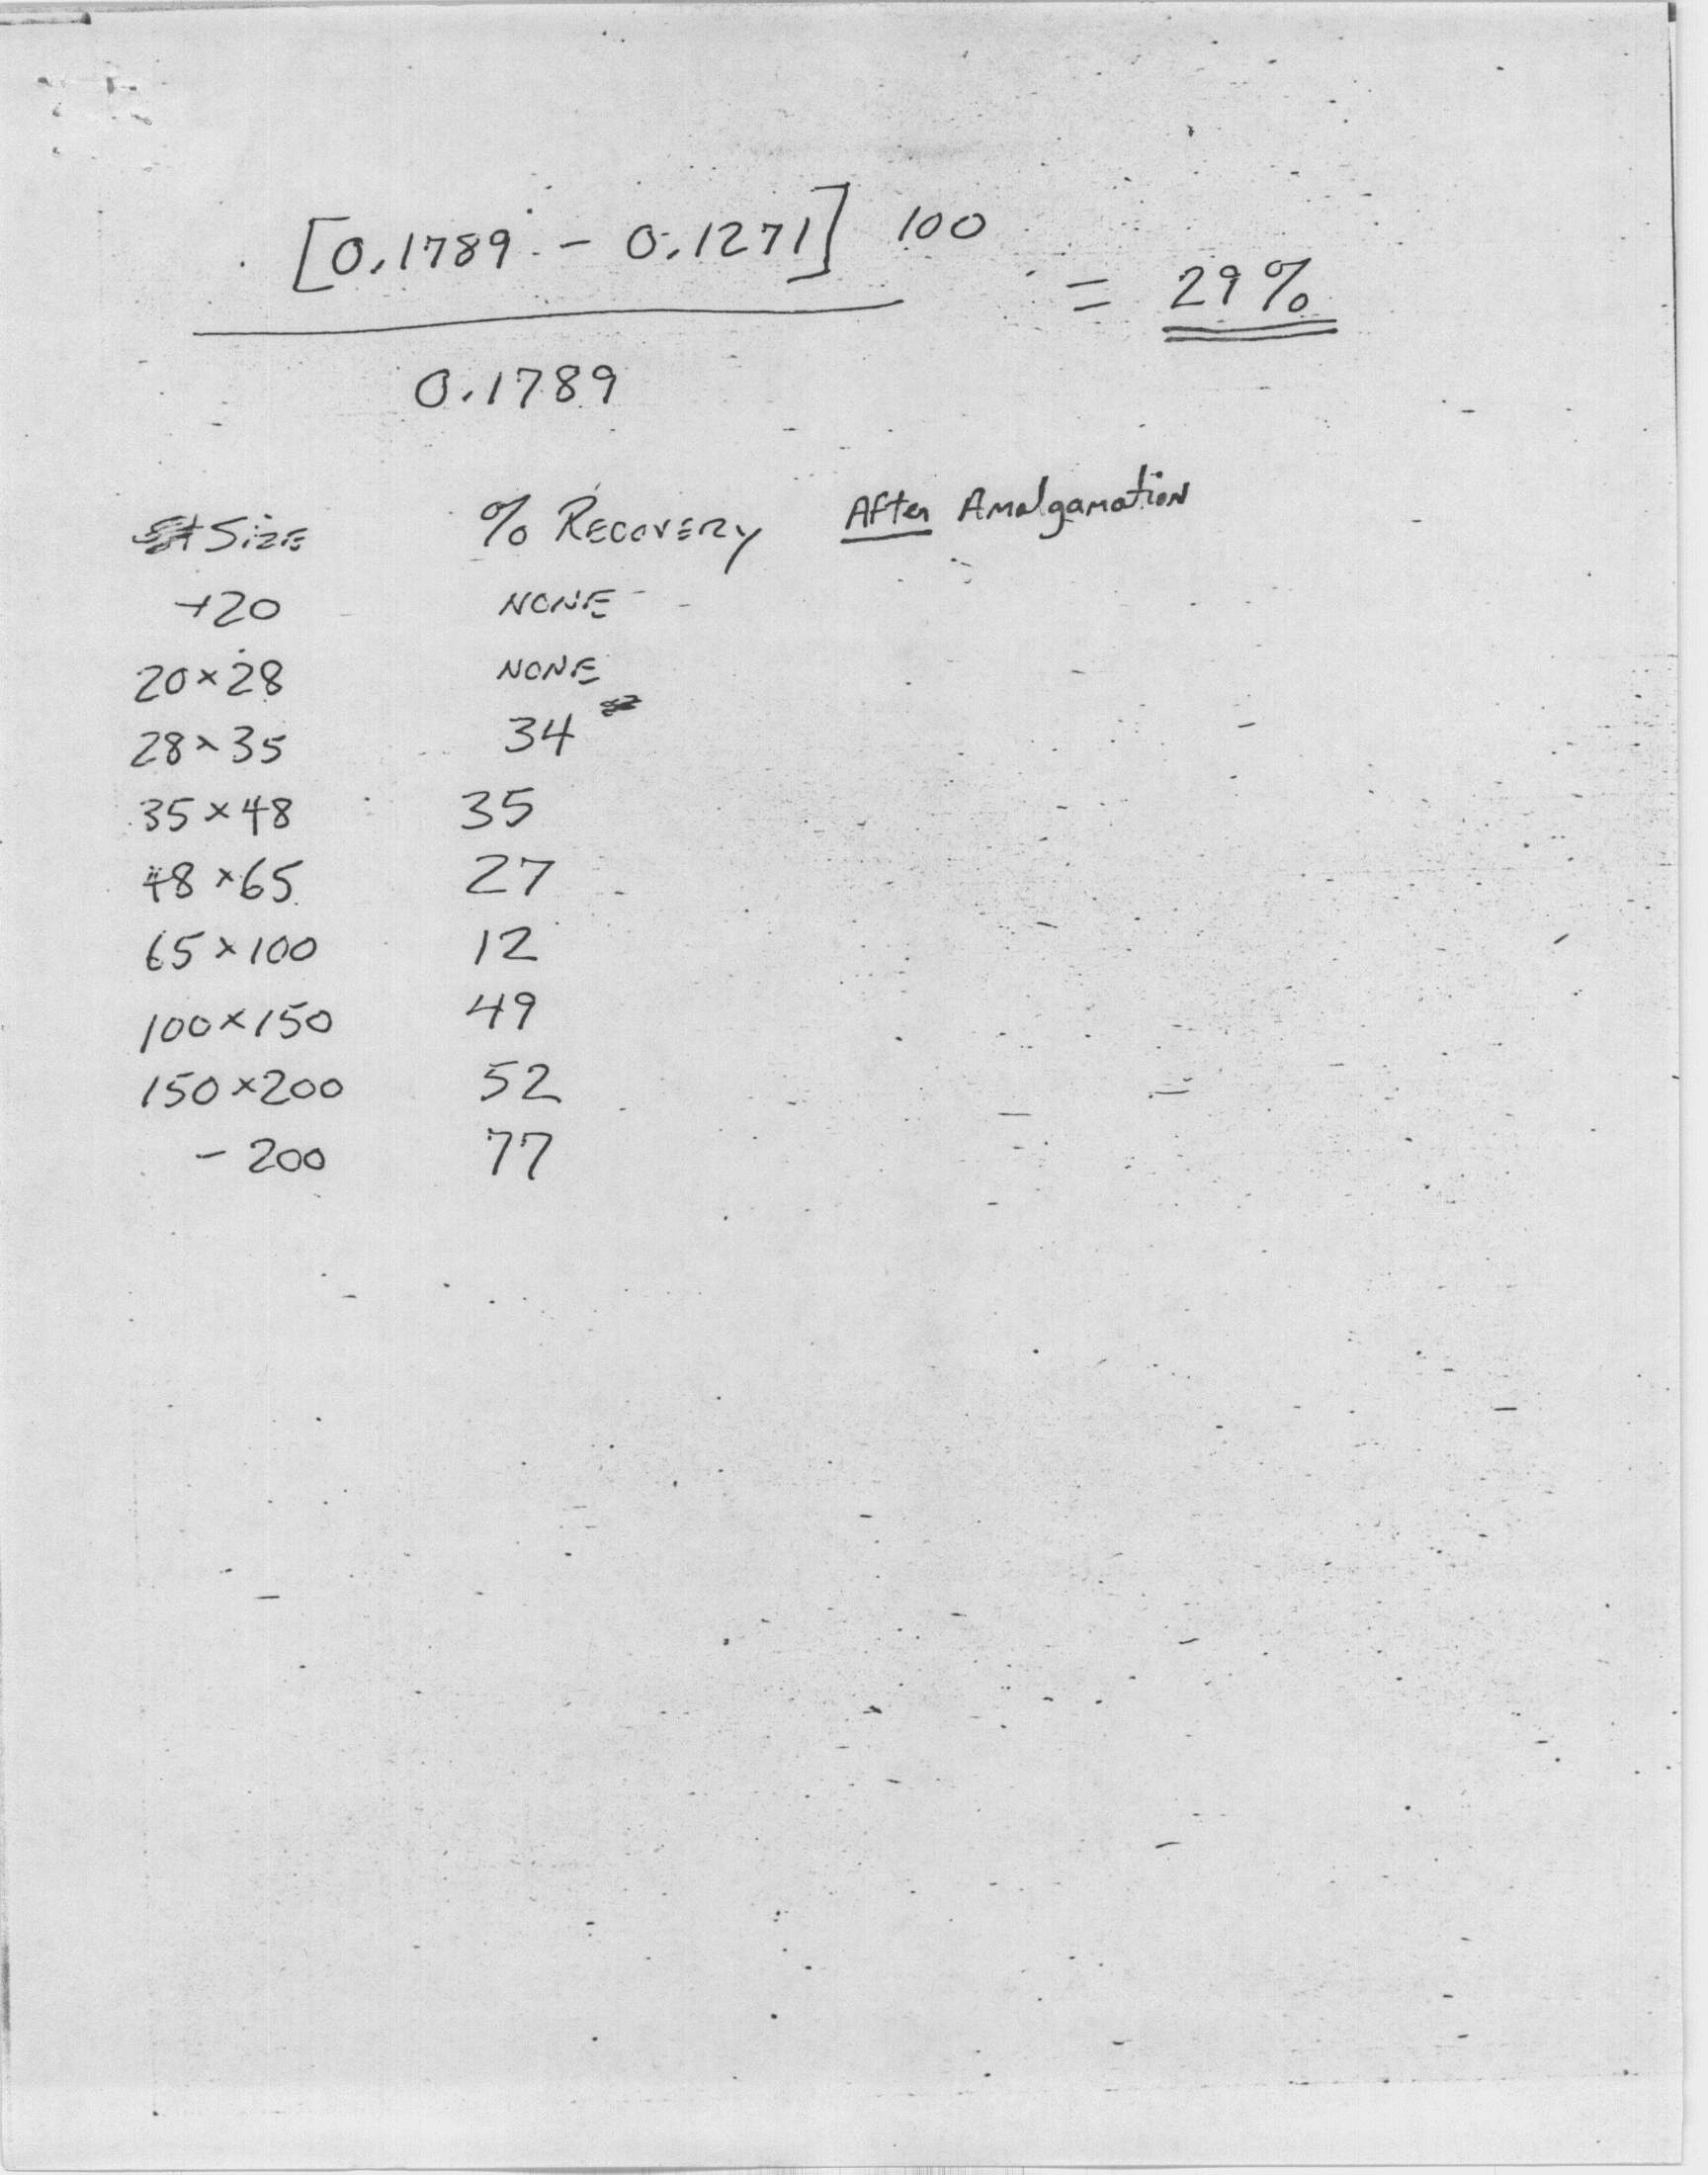 [0.1789 - 0.1271] 100
= 29%
0.1789
Size % Recovery After Amalgamation
+20 NONE
20×28 NONE
28×35 34
35×48 35
48×65 27
65×100 12
100×150 49
150×200 52
- 200 77